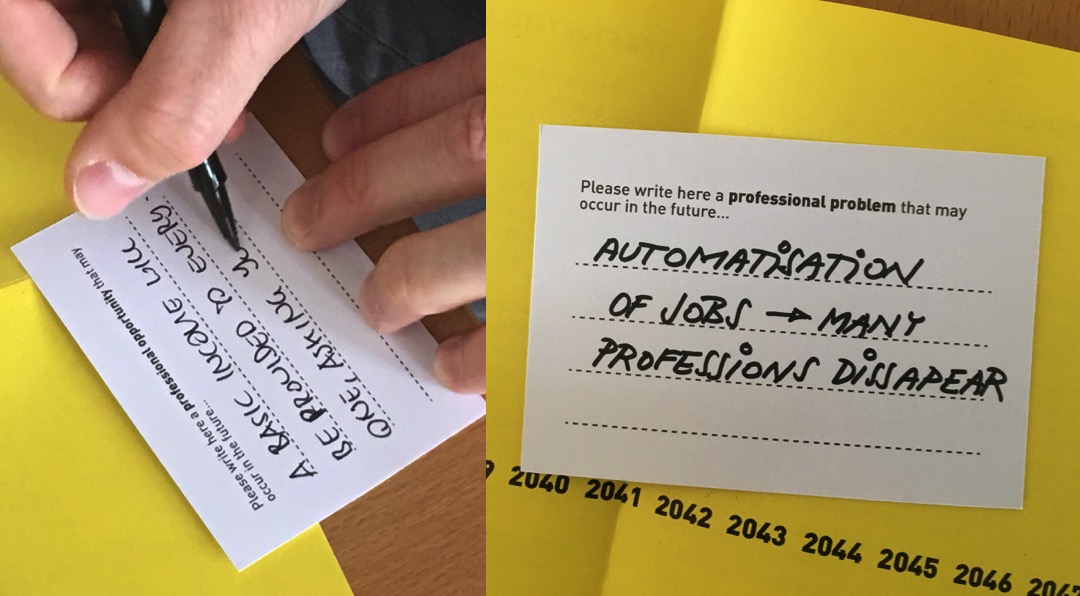 Please write here a professional opportunity that may
occur in the future...
A BASIC INCOME WILL
BE PROVIDED TO EVERY
ONE, ASKING
Please write here a professional problem that may
occur in the future...
AUTOMATISATION
OF JOBS → MANY
PROFESSIONS DISSAPEAR
2040 2041 2042 2043 2044 2045 2046 2047